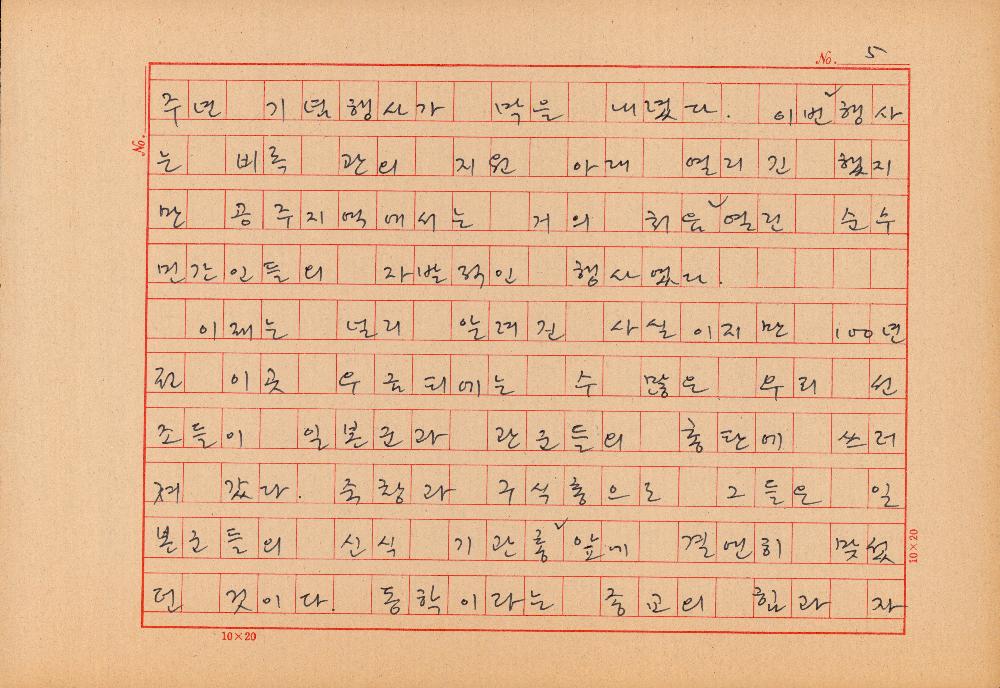 No. 5
주년 기념행사가 막을 내렸다. 이번행사
는 비록 관의 지원 아래 열리긴 했지
만 공주지역에서는 거의 처음열린 순수
민간인들의 자발적인 행사였다.
이제는 널리 알려진 사실이지만 100년
전 이곳 우금티에는 수 많은 우리 선
조들이 일본군과 관군들의 총탄에 쓰러
져 갔다. 죽창과 구식총으로 그들은 일
본군들의 신식 기관총앞에 결연히 맞섰
던 것이다. 동학이라는 종교의 힘과 자
No.
10×20
10×20